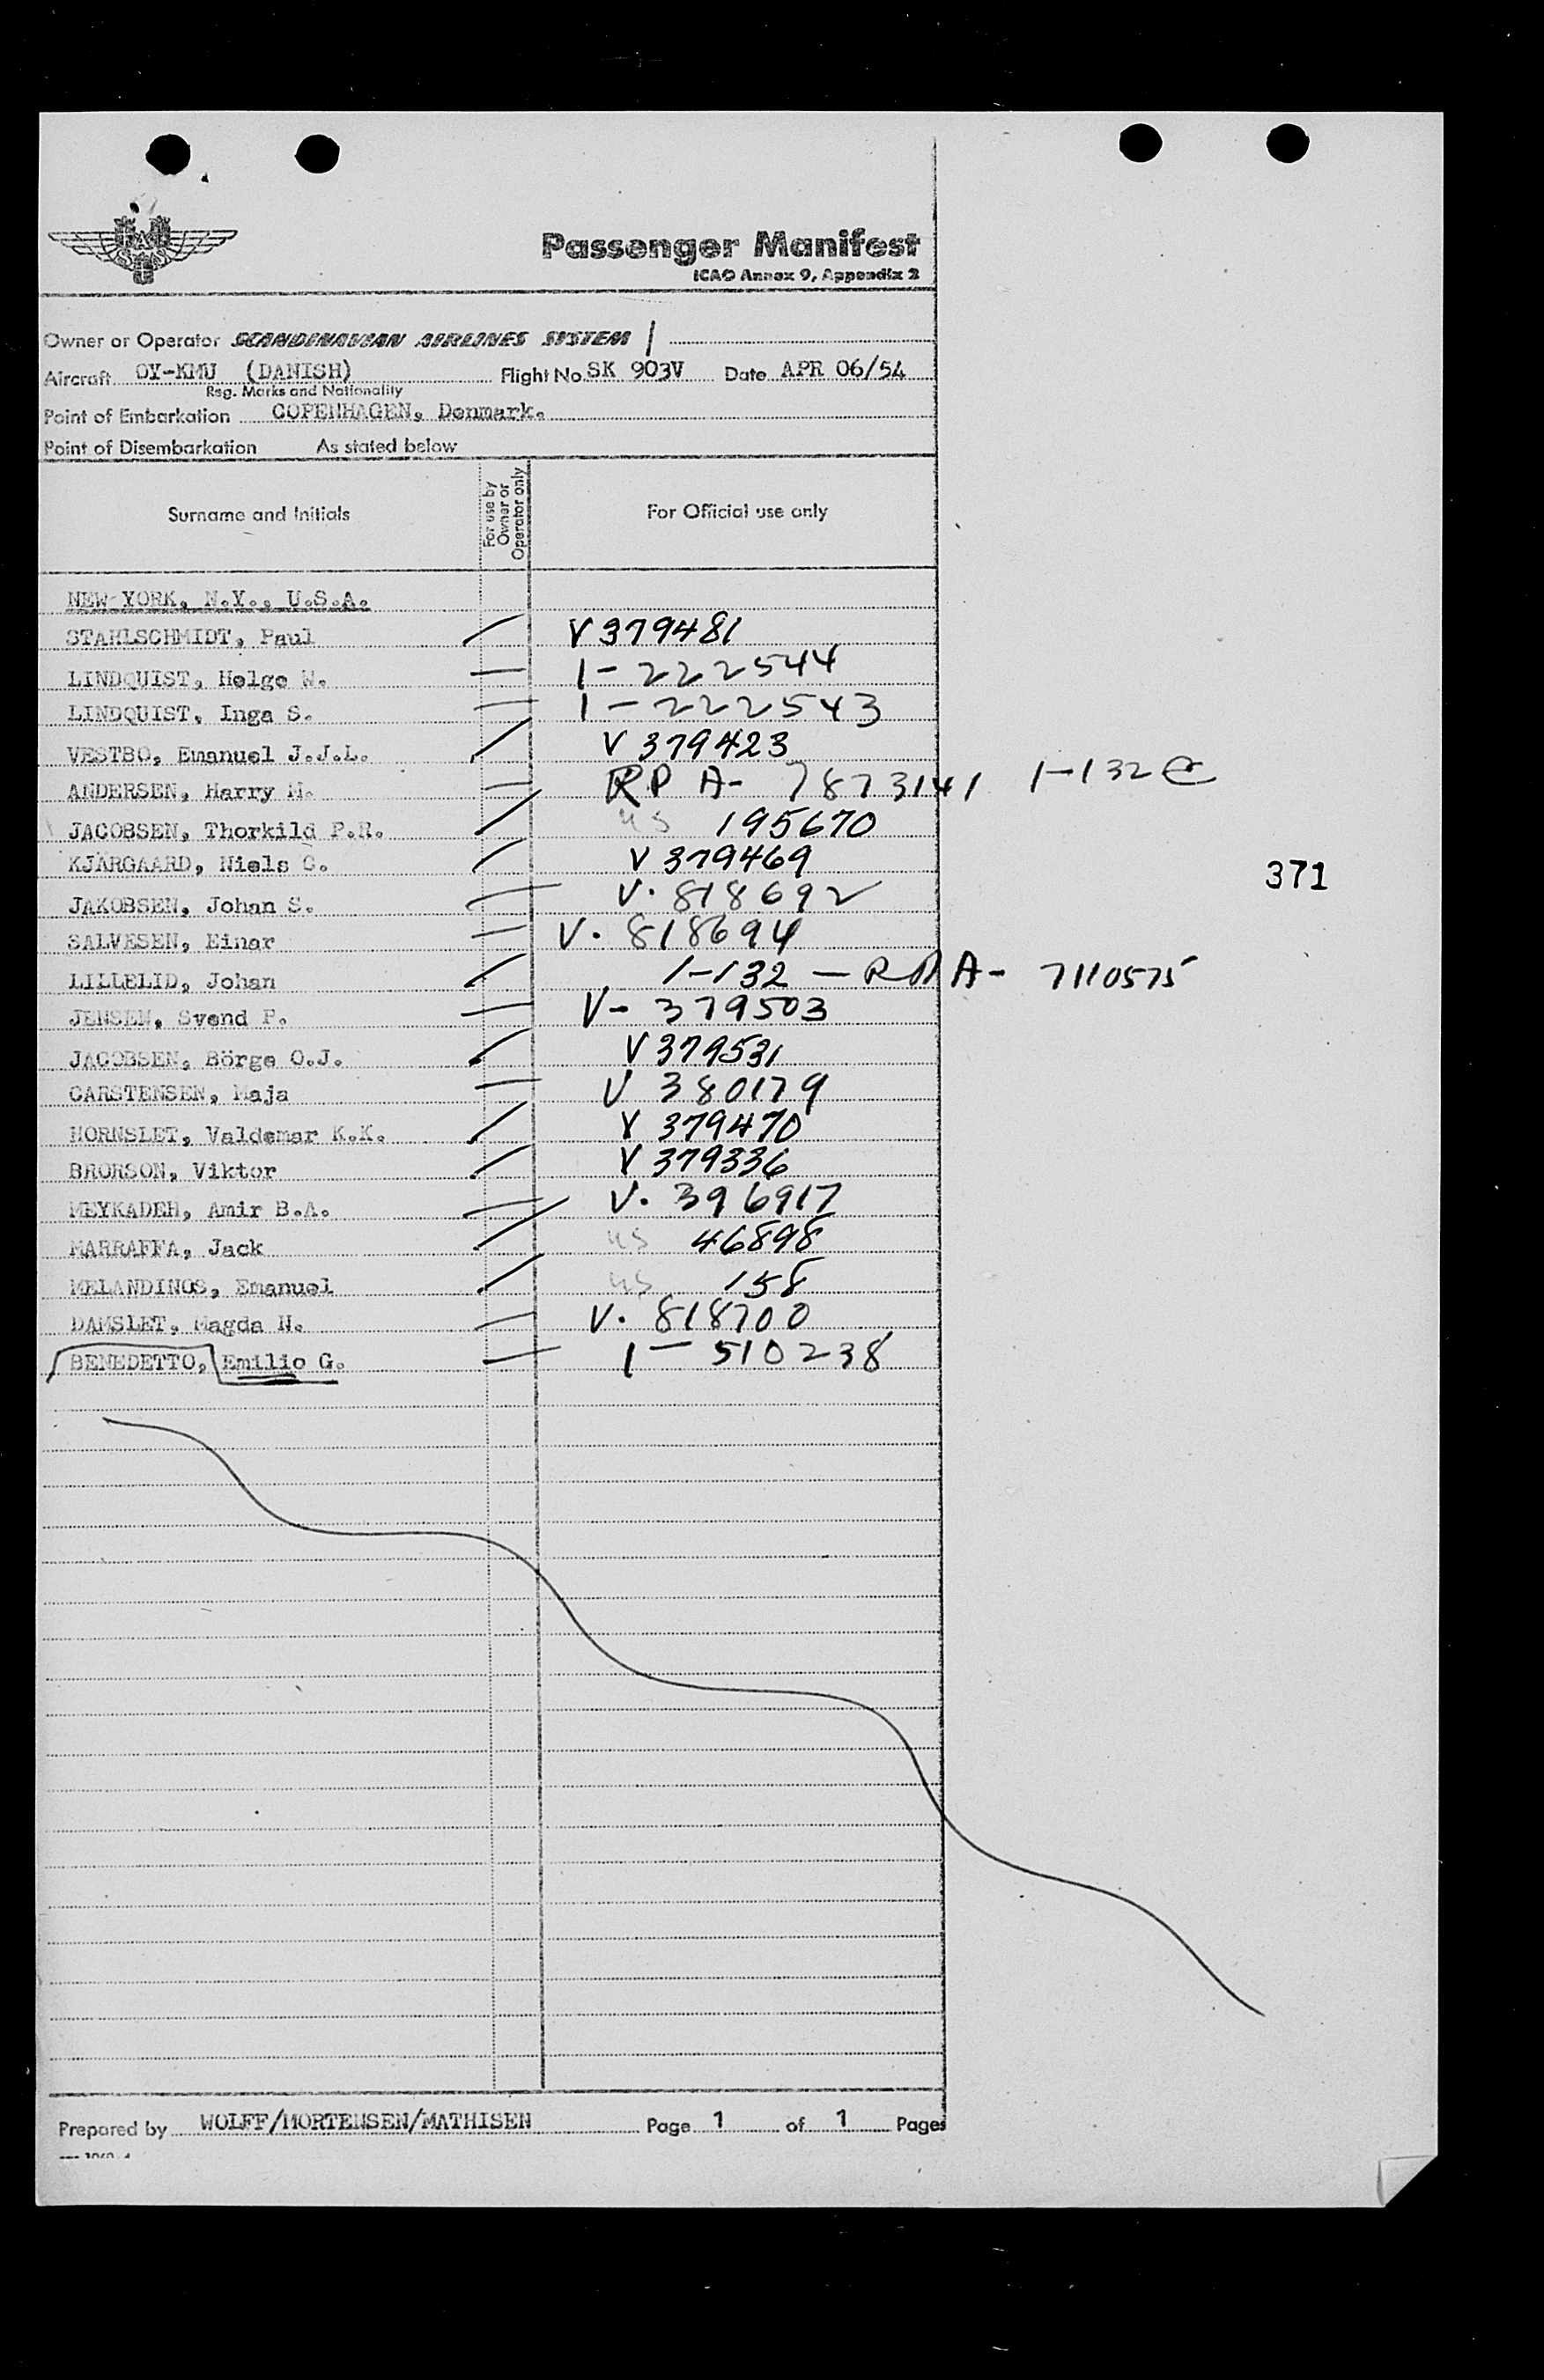 Passenger Manifest
ICAO Annex 9, Appendix 2
Owner or Operator SCANDINAVIAN AIRLINES SYSTEM
Aircraft OY-KMU (DANISH) Flight No. SK 903V Date APR 06/54
Reg. Marks and Nationality
Point of Embarkation COPENHAGEN, Denmark.
Point of Disembarkation As stated below
Surname and Initials For use by Owner or Operator only For Official use only
NEW YORK, N.Y., U.S.A.
STAHLSCHMIDT, Paul V 379481
LINDQUIST, Helge W. 1-222544
LINDQUIST, Inga S. 1-222543
VESTBO, Emanuel J.J.L. V 379423
ANDERSEN, Harry M. RP A- 7873141 1-132
JACOBSEN, Thorkild P.R. US 195670
KJÄRGAARD, Niels C. V 379469
371
JAKOBSEN, Johan S. V. 818692
SALVESEN, Einar V. 818694
LILLELID, Johan 1-132 - RP A- 7110575
JENSEN, Svend P. V- 379503
JACOBSEN, Börge O.J. V 379531
CARSTENSEN, Maja V 380179
HORNSLET, Valdemar K.K. V 379470
BRORSON, Viktor V 379336
MEYKADEH, Amir B.A. V. 396917
MARRAFFA, Jack US 46898
MELANDINOS, Emanuel US 158
DAMSLET, Magda N. V. 818700
BENEDETTO, Emilio G. 1-510238
Prepared by WOLFF/MORTENSEN/MATHISEN Page 1 of 1 Pages